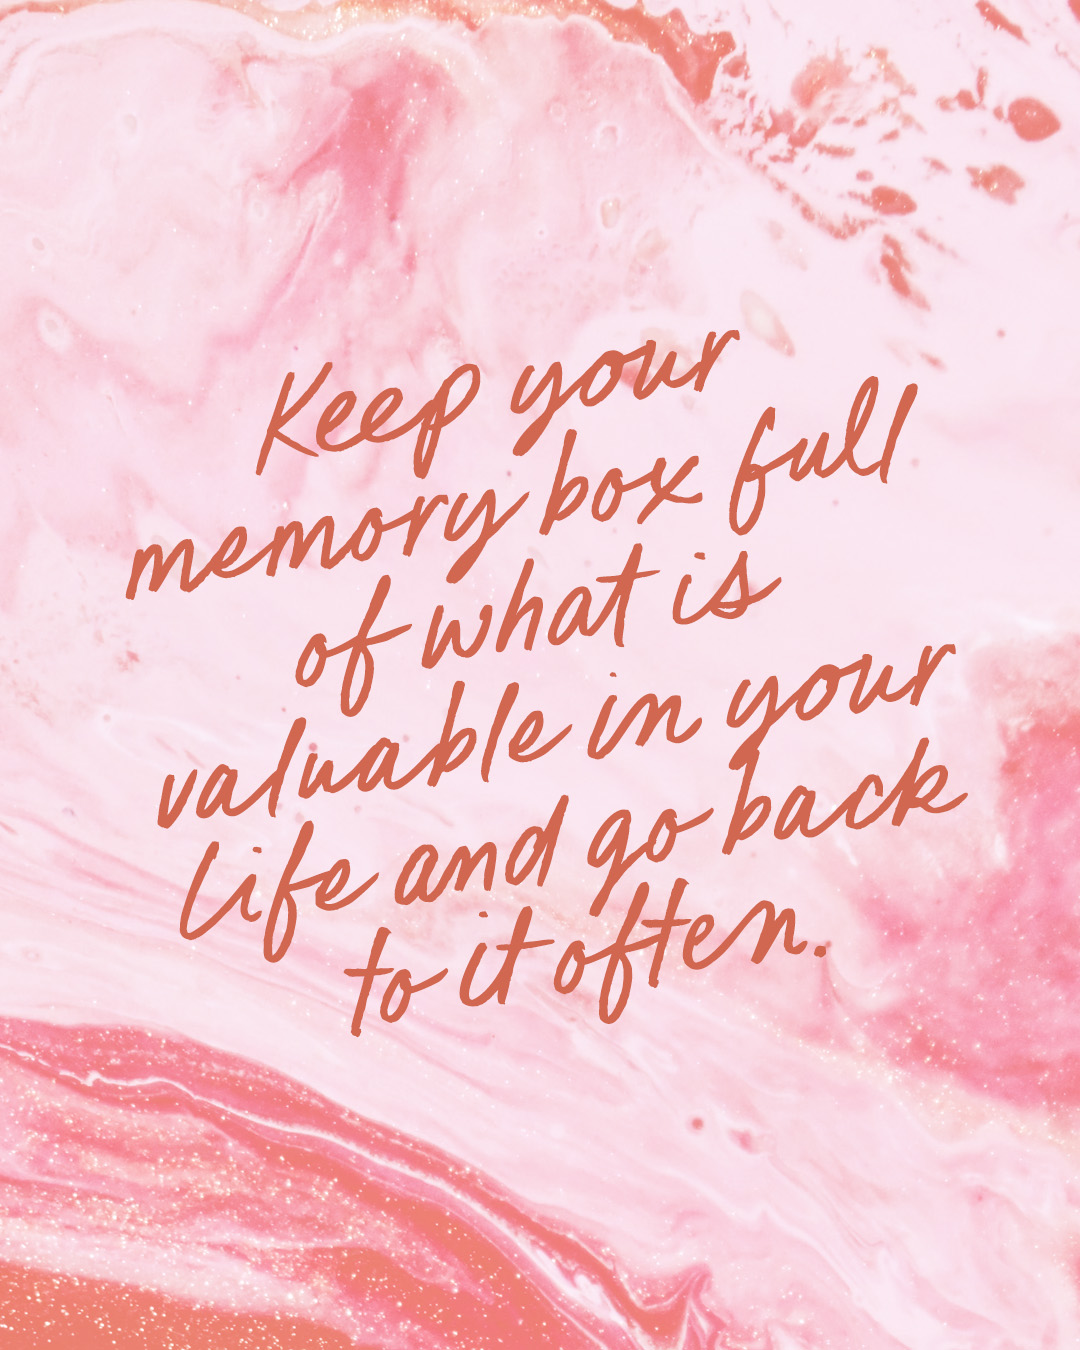 Keep your
memory box full
of what is
valuable in your
life and go back
to it often.